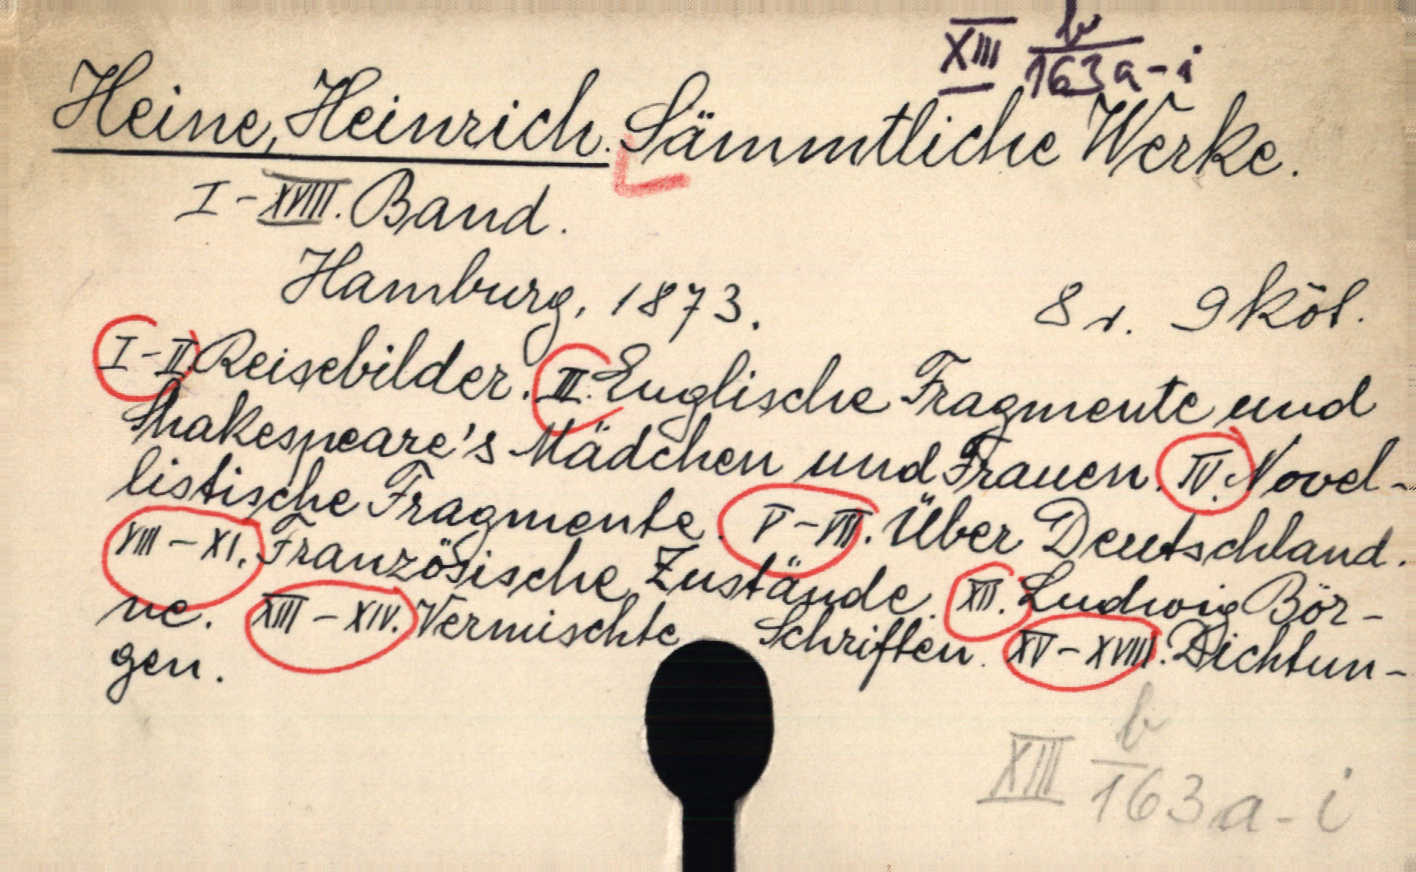 XIII b/163 a-i
Heine, Heinrich. Sämmtliche Werke.
I-XVIII. Band.
Hamburg, 1873. 8 r. 9 köt.
I-II. Reisebilder. III. Englische Fragmente und
Shakespeare's Mädchen und Frauen. IV. Novel-
listische Fragmente. V-VII. Über Deutschland.
VIII-XI. Französische Zustände. XII. Ludwig Bör-
ne. XIII-XIV. Vermischte Schriften. XV-XVIII. Dichtun-
gen.
XIII b/163 a-i